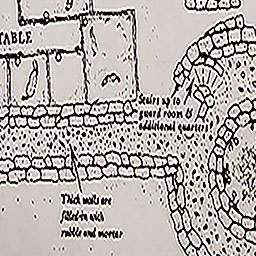 TABLE
Stairs up to
guard room &
additional quarters
Thick walls are
filled in with
rubble and mortar